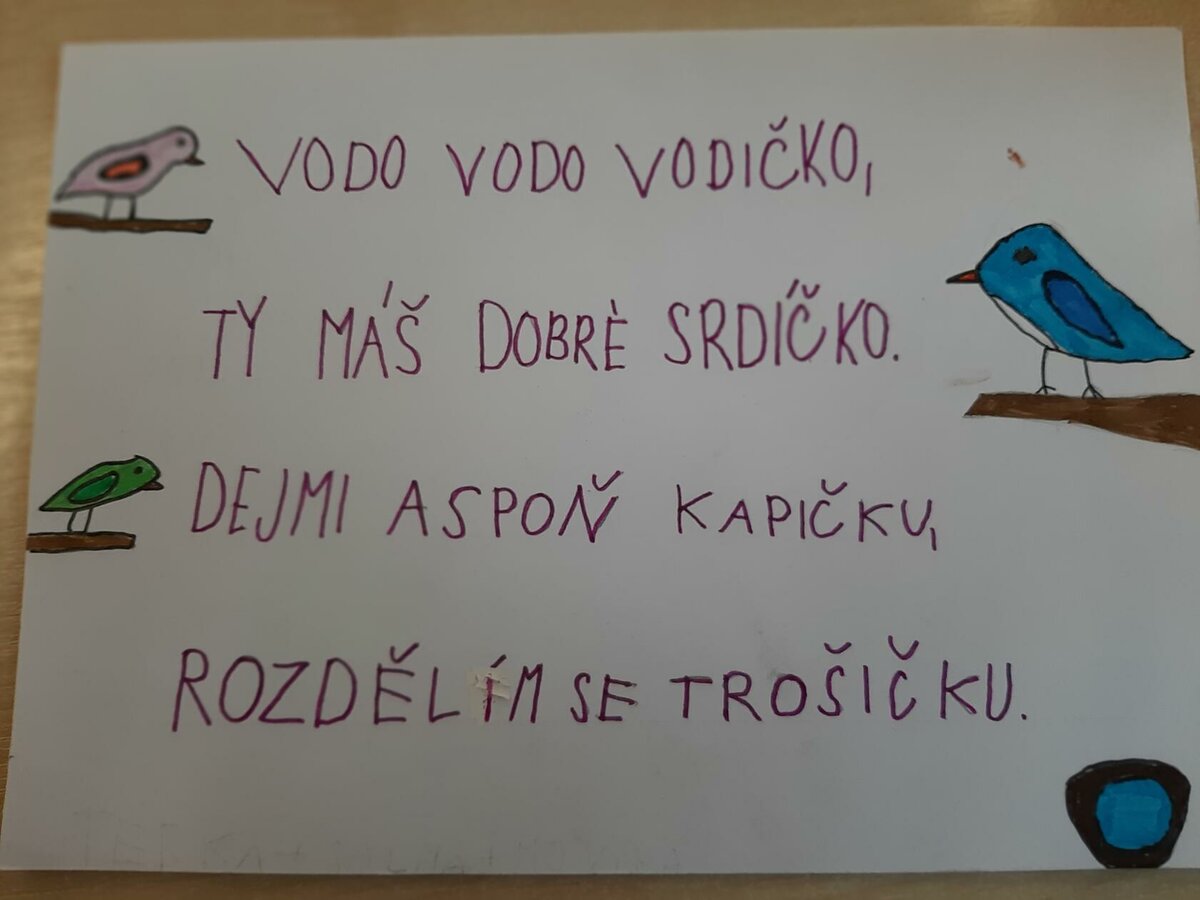 VODO VODO VODIČKO,
TY MÁŠ DOBRÉ SRDÍČKO.
DEJMI ASPOŇ KAPIČKU,
ROZDĚLÍM SE TROŠIČKU.